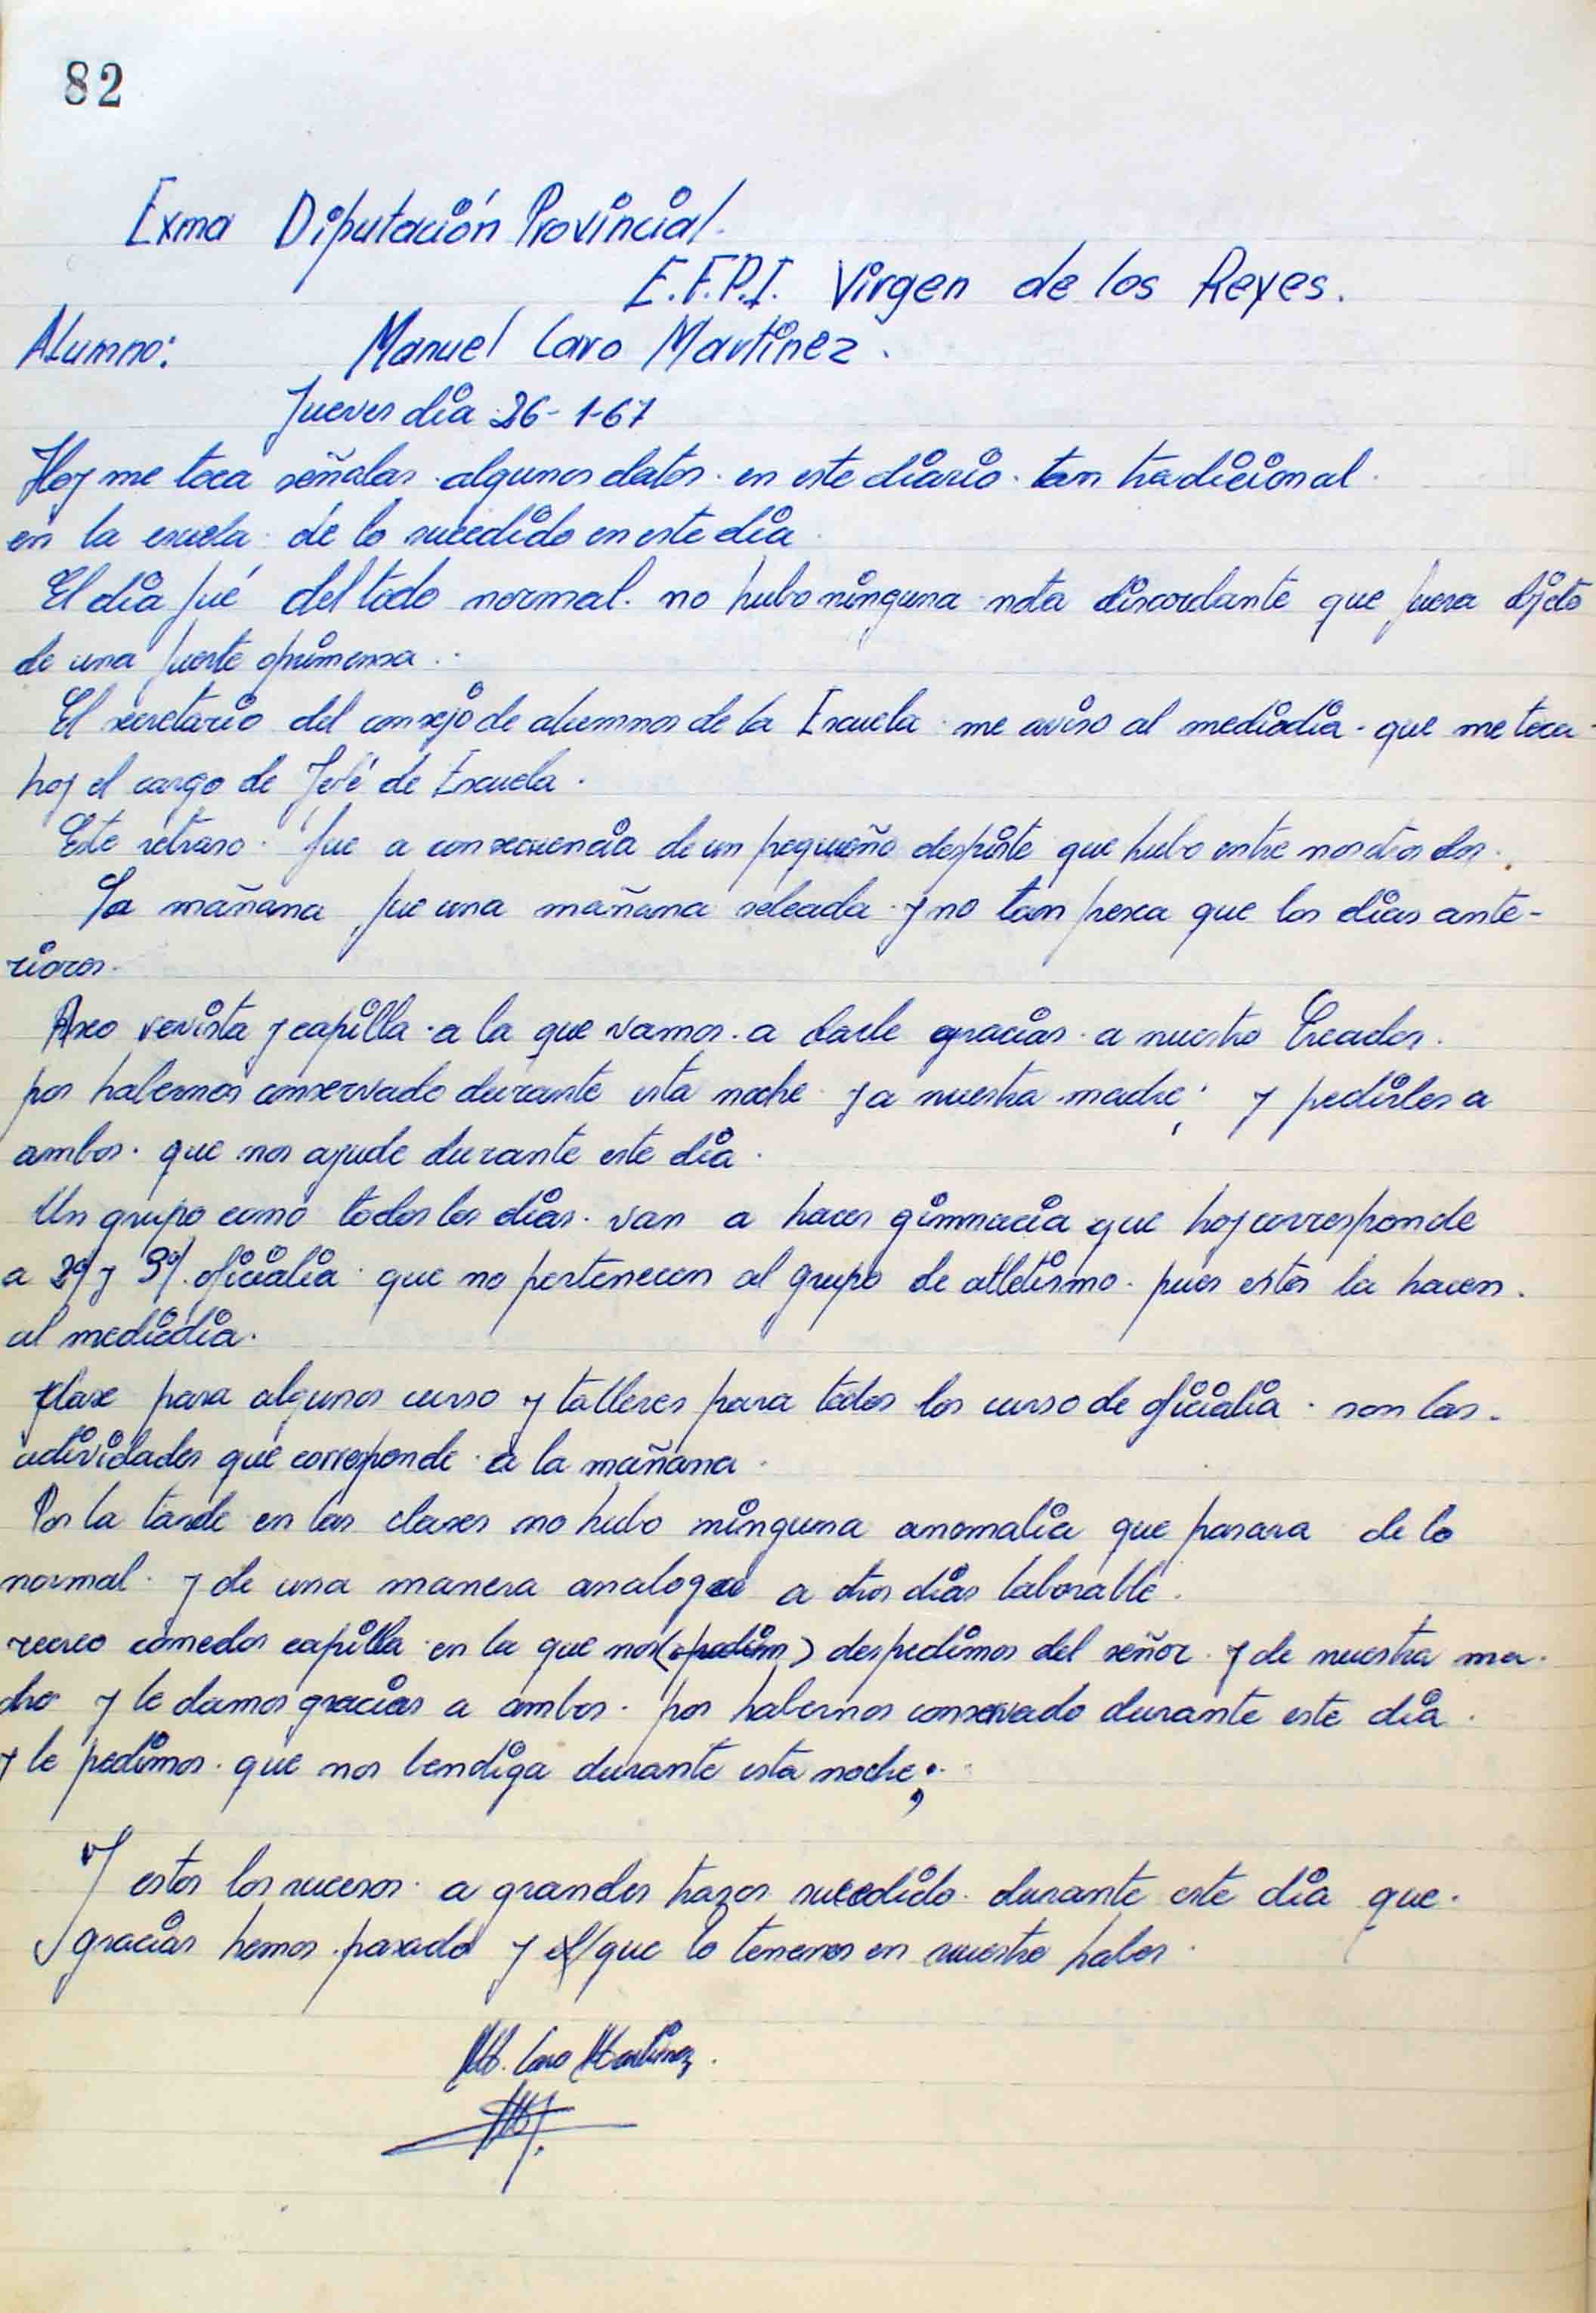 82
Exma Diputación Provincial.
E.F.P.I. Virgen de los Reyes.
Alumno: Manuel Caro Martinez.
Jueves dia 26-1-67
Hoy me toca señalar algunos datos en este diario tan tradicional
en la escuela de lo sucedido en este dia
El dia fué del todo normal. no hubo ninguna nota discordante que fuera objeto
de una fuerte
El secretario del consejo de alumnos de la Escuela me aviso al mediodia que me toca
hoy el cargo de Jefé de Escuela.
Este retraso fue a consecuencia de un pequeño despiste que hubo entre nosotros dos.
La mañana fue una mañana soleada y no tan fresca que los dias ante-
riores.
Aseo revista y capilla a la que vamos a darle gracias a nuestro Creador.
por habernos conservado durante esta noche y a nuestra madre; y pedirles a
ambos que nos ayude durante este dia.
Un grupo como todos los dias van a hacer gimnacia que hoy corresponde
a 2º y 3º oficialia que no pertenecen al grupo de atletismo pues estos la hacen.
al mediodia.
clase para algunos curso y talleres para todos los curso de oficialia son las
actividades que corresponde a la mañana.
Por la tarde en las clases no hubo ninguna anomalia que pasara de lo
normal y de una manera analoga a otros dias laborable.
recreo comedor capilla en la que nos ( ) despedimos del señor y de nuestra ma-
dre y le damos gracias a ambos por habernos conservado durante este dia.
y le pedimos que nos bendiga durante esta noche;
Y estos los sucesos a grandes trazos sucedido durante este dia que
gracias hemos pasado y el que lo tenemos en nuestro haber.
M. Caro Martinez.